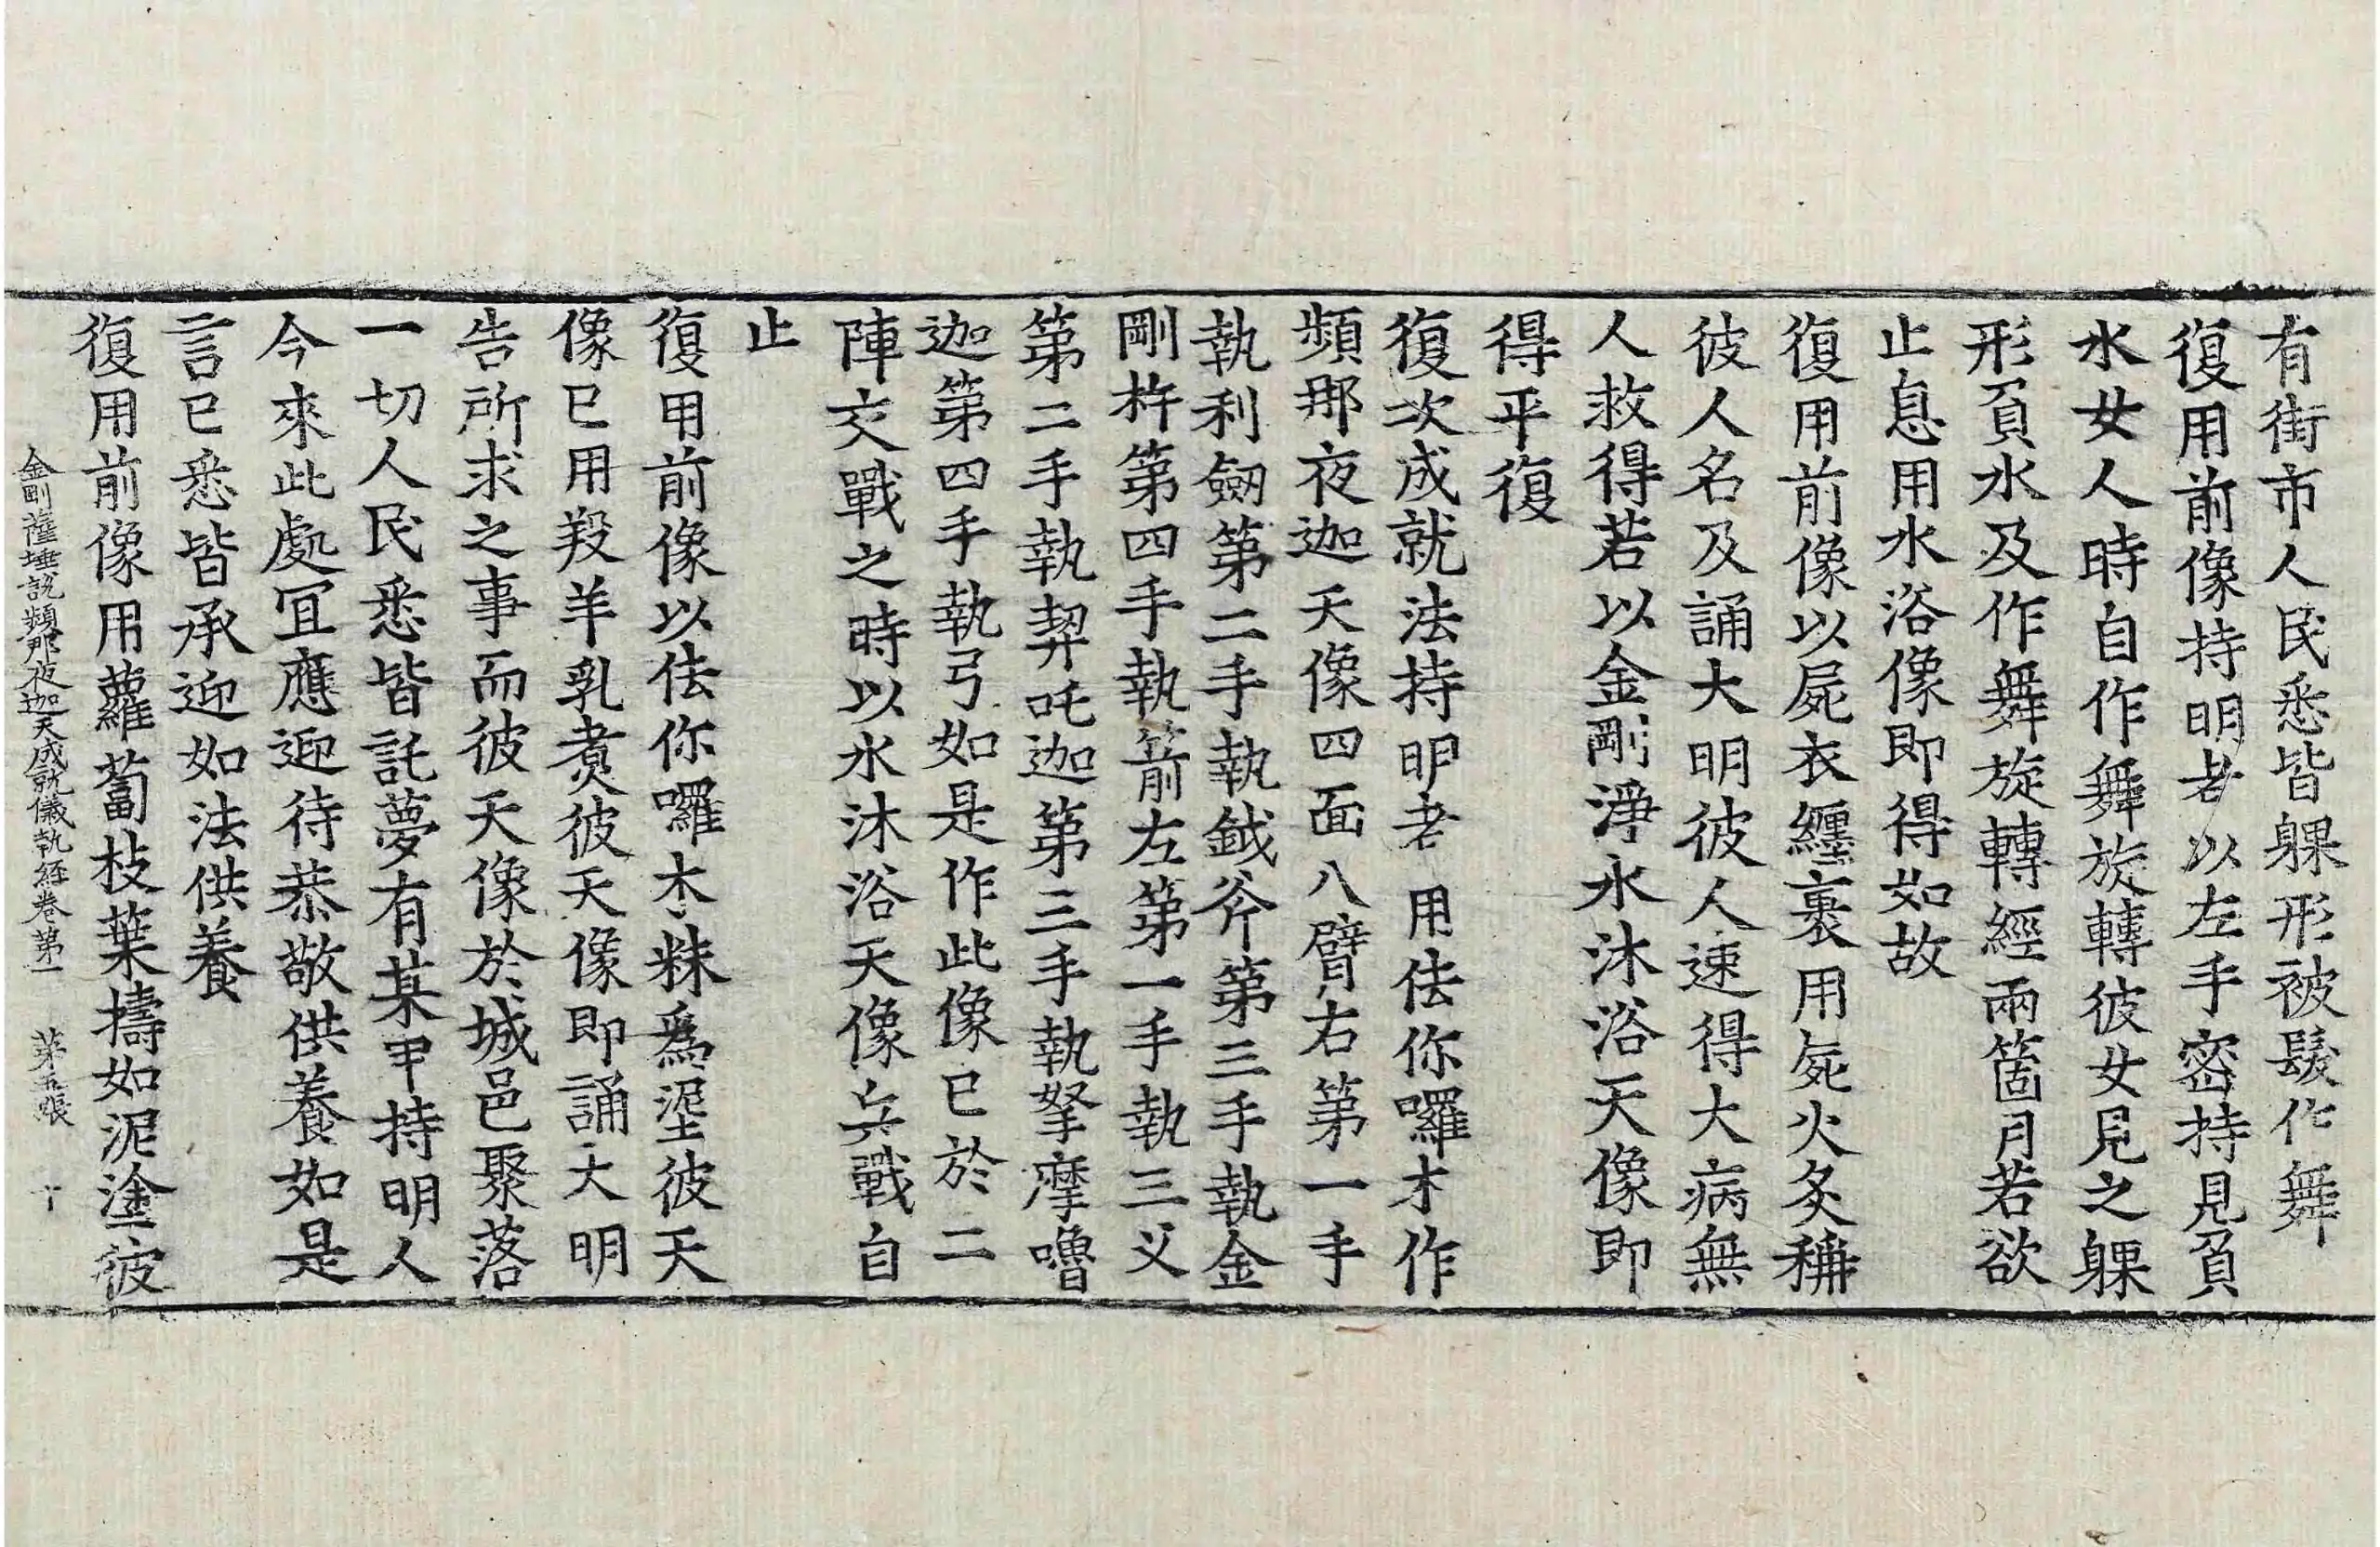 有街市人民悉皆躶形被髮作舞
復用前像持明者以左手密持見負
水女人時自作舞旋轉彼女見之躶
形負水及作舞旋轉經兩箇月若欲
止息用水浴像即得如故
復用前像以屍衣纏裹用屍火炙稱
彼人名及誦大明彼人速得大病無
人救得若以金剛淨水沐浴天像即
得平復
復次成就法持明者用佉你囉木作
頻那夜迦天像四面八臂右第一手
執利劒第二手執鉞斧第三手執金
剛杵第四手執箭左第一手執三叉
第二手執朅吒迦第三手執拏摩嚕
迦第四手執弓如是作此像已於二
陣交戰之時以水沐浴天像兵戰自
止
復用前像以佉你囉木粖為埿彼天
像已用羖羊乳煑彼天像即誦大明
告所求之事而彼天像於城邑聚落
一切人民悉皆託夢有某甲持明人
今來此處冝應迎待恭敬供養如是
言已悉皆承迎如法供養
復用前像用蘿蔔枝葉擣如泥塗彼
金剛薩埵說頻那夜迦天成就儀軌經卷第一 第五張 十